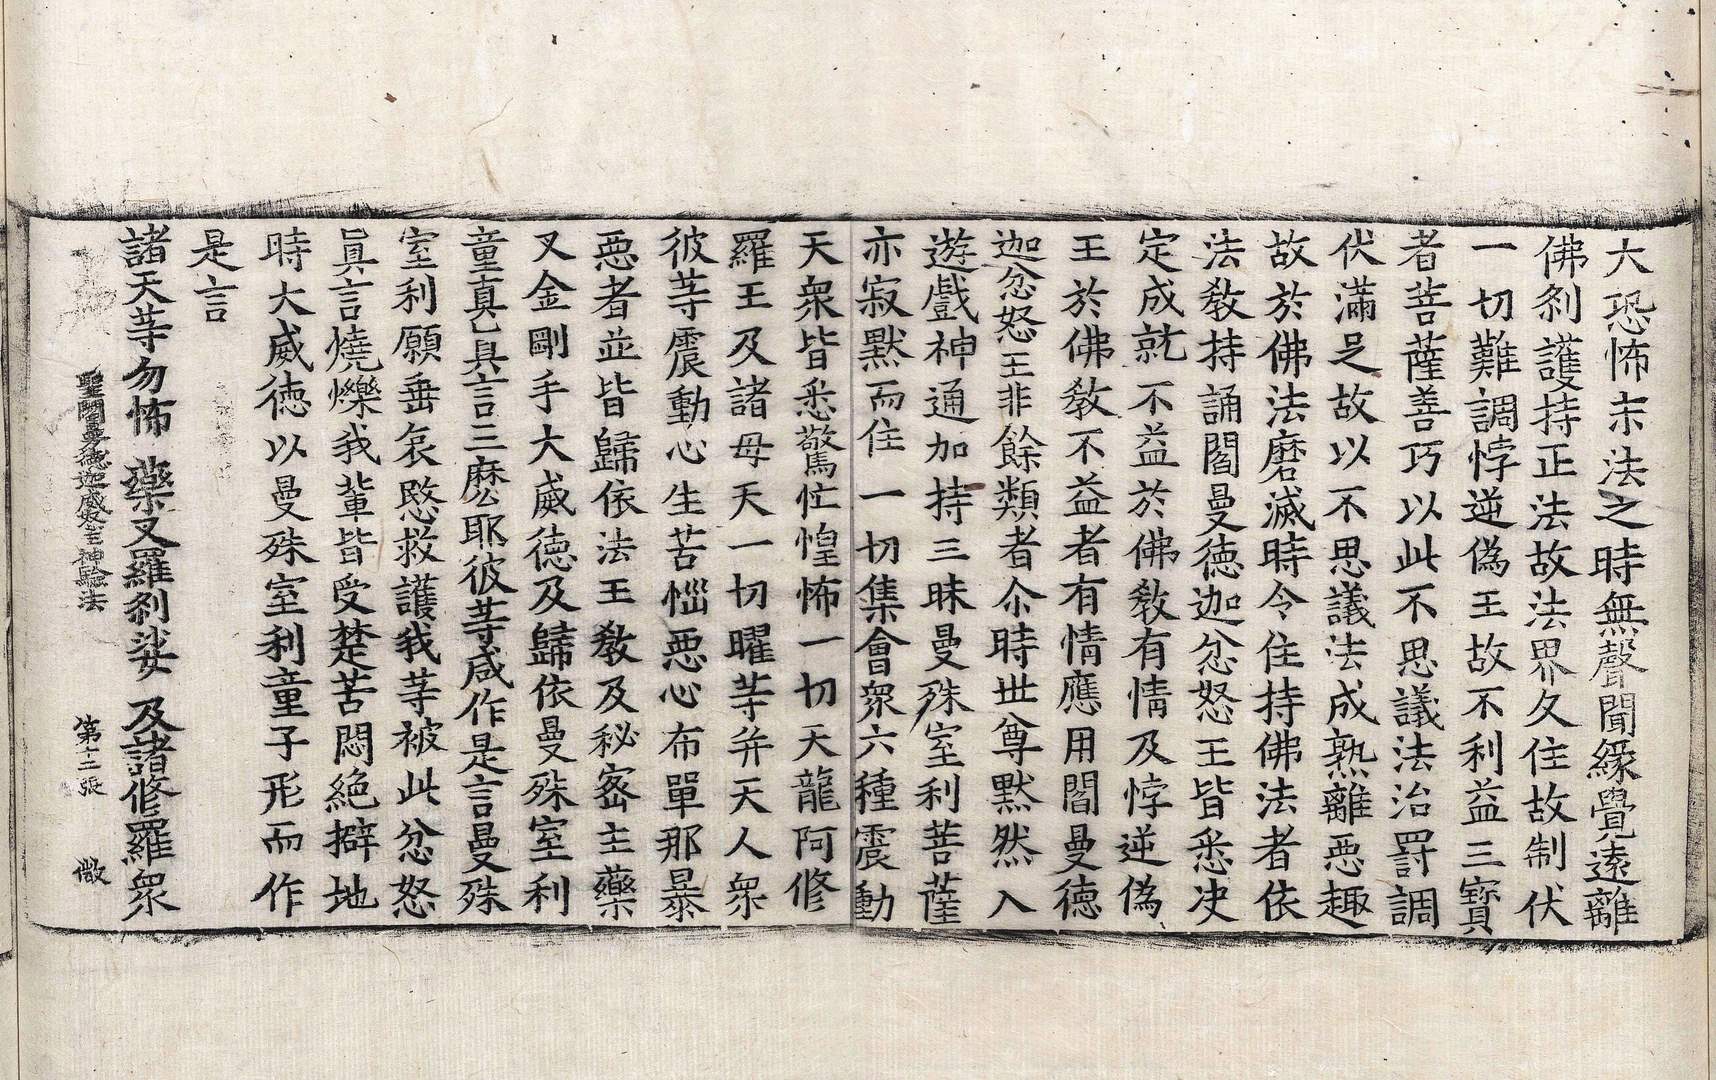 大恐怖末法之時無聲聞緣覺遠離
佛剎護持正法故法界久住故制伏
一切難調悖逆偽王故不利益三寶
者菩薩善巧以此不思議法治罸調
伏滿足故以不思議法成熟離惡趣
故於佛法磨滅時令住持佛法者依
法教持誦閻曼德迦忿怒王皆悉决
定成就不益於佛教有情及悖逆偽
王於佛教不益者有情應用閻曼德
迦忿怒王非餘類者尒時世尊默然入
遊戲神通加持三昧曼殊室利菩薩
亦寂默而住一切集會衆六種震動
天衆皆悉驚忙惶怖一切天龍阿修
羅王及諸母天一切曜等并天人衆
彼等震動心生苦惱惡心布單那暴
惡者並皆歸依法王教及秘密主藥
叉金剛手大威德及歸依曼殊室利
童真已真言三麽耶彼等咸作是言曼殊
室利願垂哀愍救護我等被此忿怒
眞言燒爍我輩皆受楚苦悶絕擗地
時大威德以曼殊室利童子形而作
是言
諸天等勿怖 藥叉羅剎娑 及諸修羅衆
聖閻曼德迦威怒王神驗法 第十二張 微